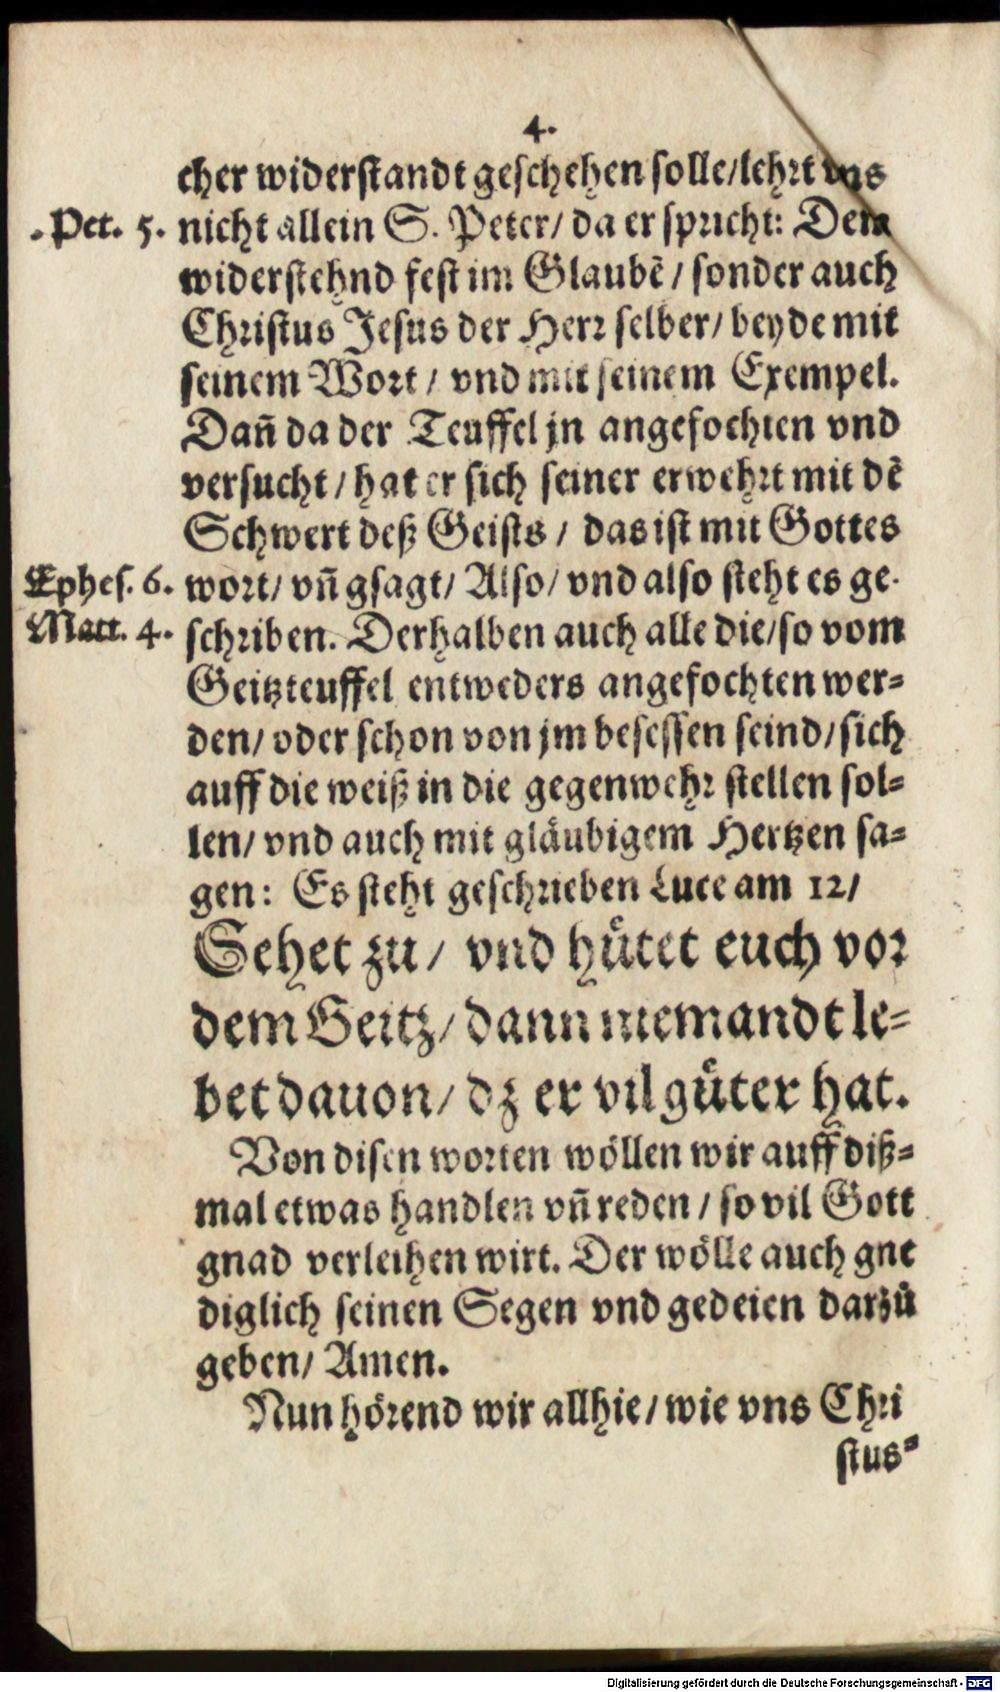 4.
cher widerstandt geschehen solle/lehrt vns
. Pet. 5. nicht allein S. Peter/ da er spricht: Dem
widerstehnd fest im Glaubẽ / sonder auch
Christus Jesus der Herr selber/ beyde mit
seinem Wort / vnd mit seinem Exempel.
Dañ da der Teuffel jn angefochten vnd
versucht / hat er sich seiner erwehrt mit dẽ
Schwert deß Geists / das ist mit Gottes
Ephes. 6. wort/ vñ gsagt/ Also/ vnd also steht es ge-
Matt. 4. schriben. Derhalben auch alle die/so vom
Geitzteuffel entweders angefochten wer-
den/ oder schon von jm besessen seind/sich
auff die weiß in die gegenwehr stellen sol-
len/ vnd auch mit gläubigem Hertzen sa-
gen: Es steht geschrieben Luce am 12/
Sehet zu / vnd hůtet euch vor
dem Geitz/ dann niemandt le-
bet dauon/ dz er vil gůter hat.
Von disen worten wöllen wir auff diß-
mal etwas handlen vñ reden / so vil Gott
gnad verleihen wirt. Der wölle auch gne
diglich seinen Segen vnd gedeien darzů
geben/ Amen.
Nun hörend wir allhie/ wie vns Chri
stus-
Digitalisierung gefördert durch die Deutsche Forschungsgemeinschaft - DFG